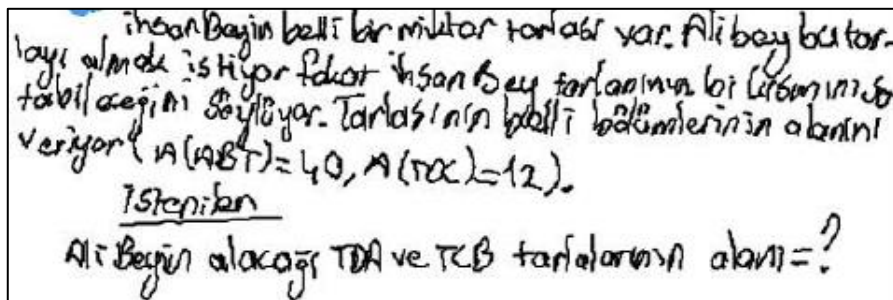 İhsan Beyin belli bir miktar tarlası var. Ali bey bu tar-
layı almak istiyor fakat İhsan Bey tarlanının bi kısmını sa
tabileceğini söylüyor. Tarlasının belli bölümlerinin alanını
veriyor (A(ABT)=40, A(TDC)=12).
İstenilen
Ali Beyin alacağı TDA ve TCB tarlalarının alanı=?